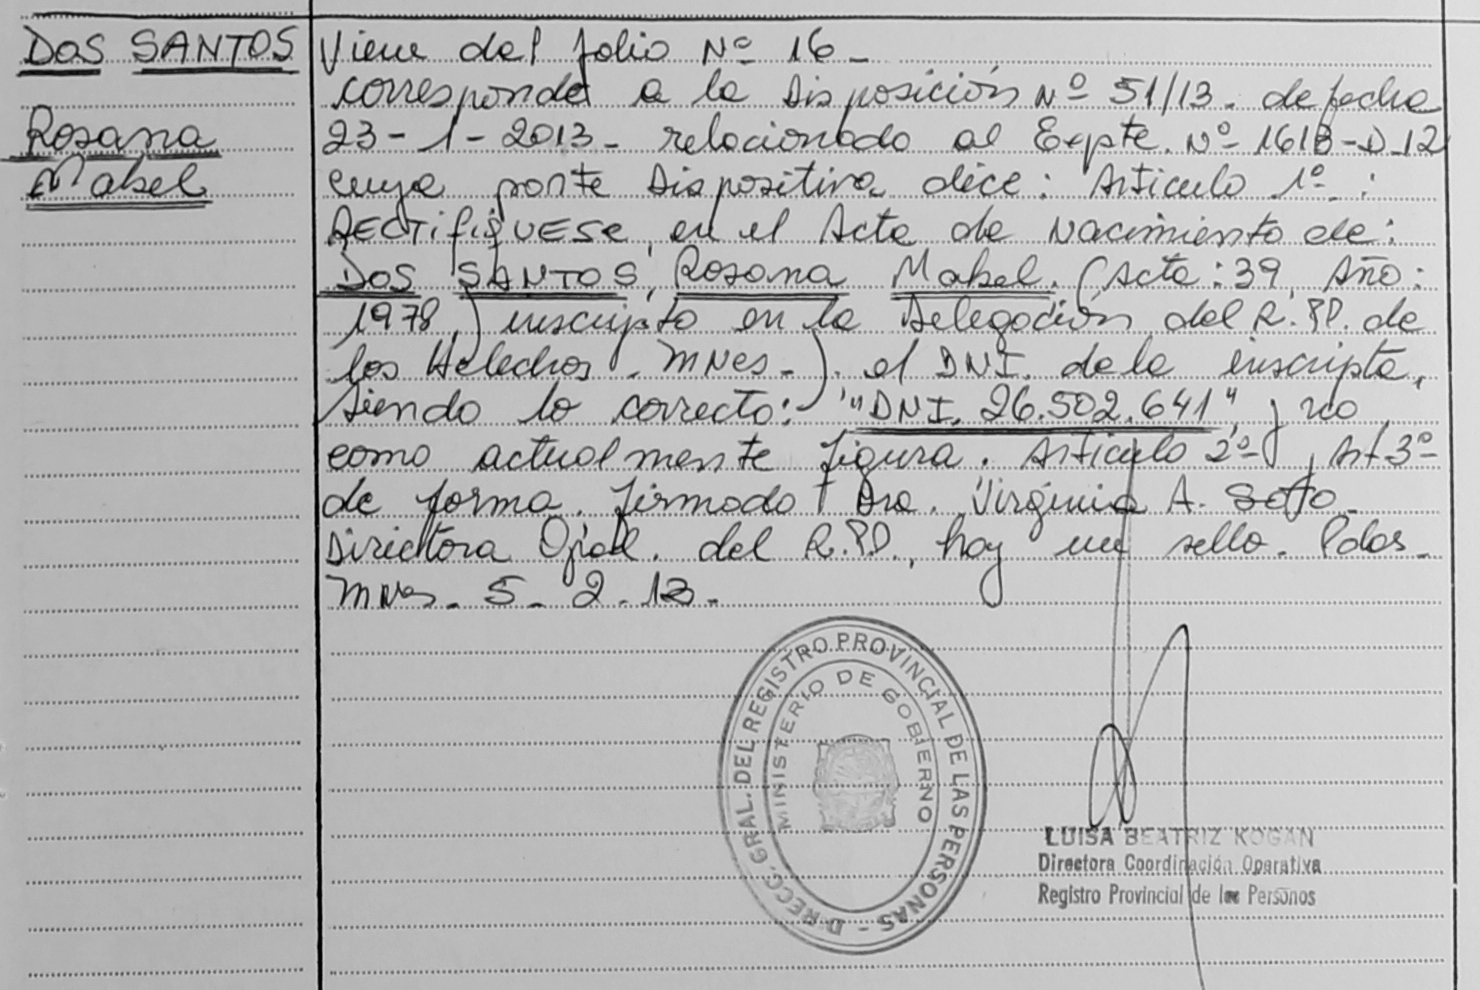 DOS SANTOS
Rosana
Mabel
Viene del folio Nº 16-
corresponde a la Disposición Nº 51/13. de fecha
23-1-2013- relacionado al Expte. Nº 1618-D-12
cuya parte Dispositiva dice: Artículo 1º:
RECTIFIQUESE, en el Acta de Nacimiento de:
DOS SANTOS, Rosana Mabel. (Acta: 39, Año:
1978,) inscripto en la Delegación del R.PP. de
los Helechos. MNes-). el DNI. de la inscripta,
siendo lo correcto: "DNI. 26.502.641" y no
como actualmente figura. Artículo 2º, Art 3º-
de forma. firmado Dra. Virginia A. Soto-
Directora Gral. del R.PP., hay un sello. Pdas-
MNes- 5-2-13-
DIRECC. GRAL. DEL REGISTRO PROVINCIAL DE LAS PERSONAS -
MINISTERIO DE GOBIERNO
LUISA BEATRIZ KOGAN
Directora Coordinación Operativa
Registro Provincial de las Personas